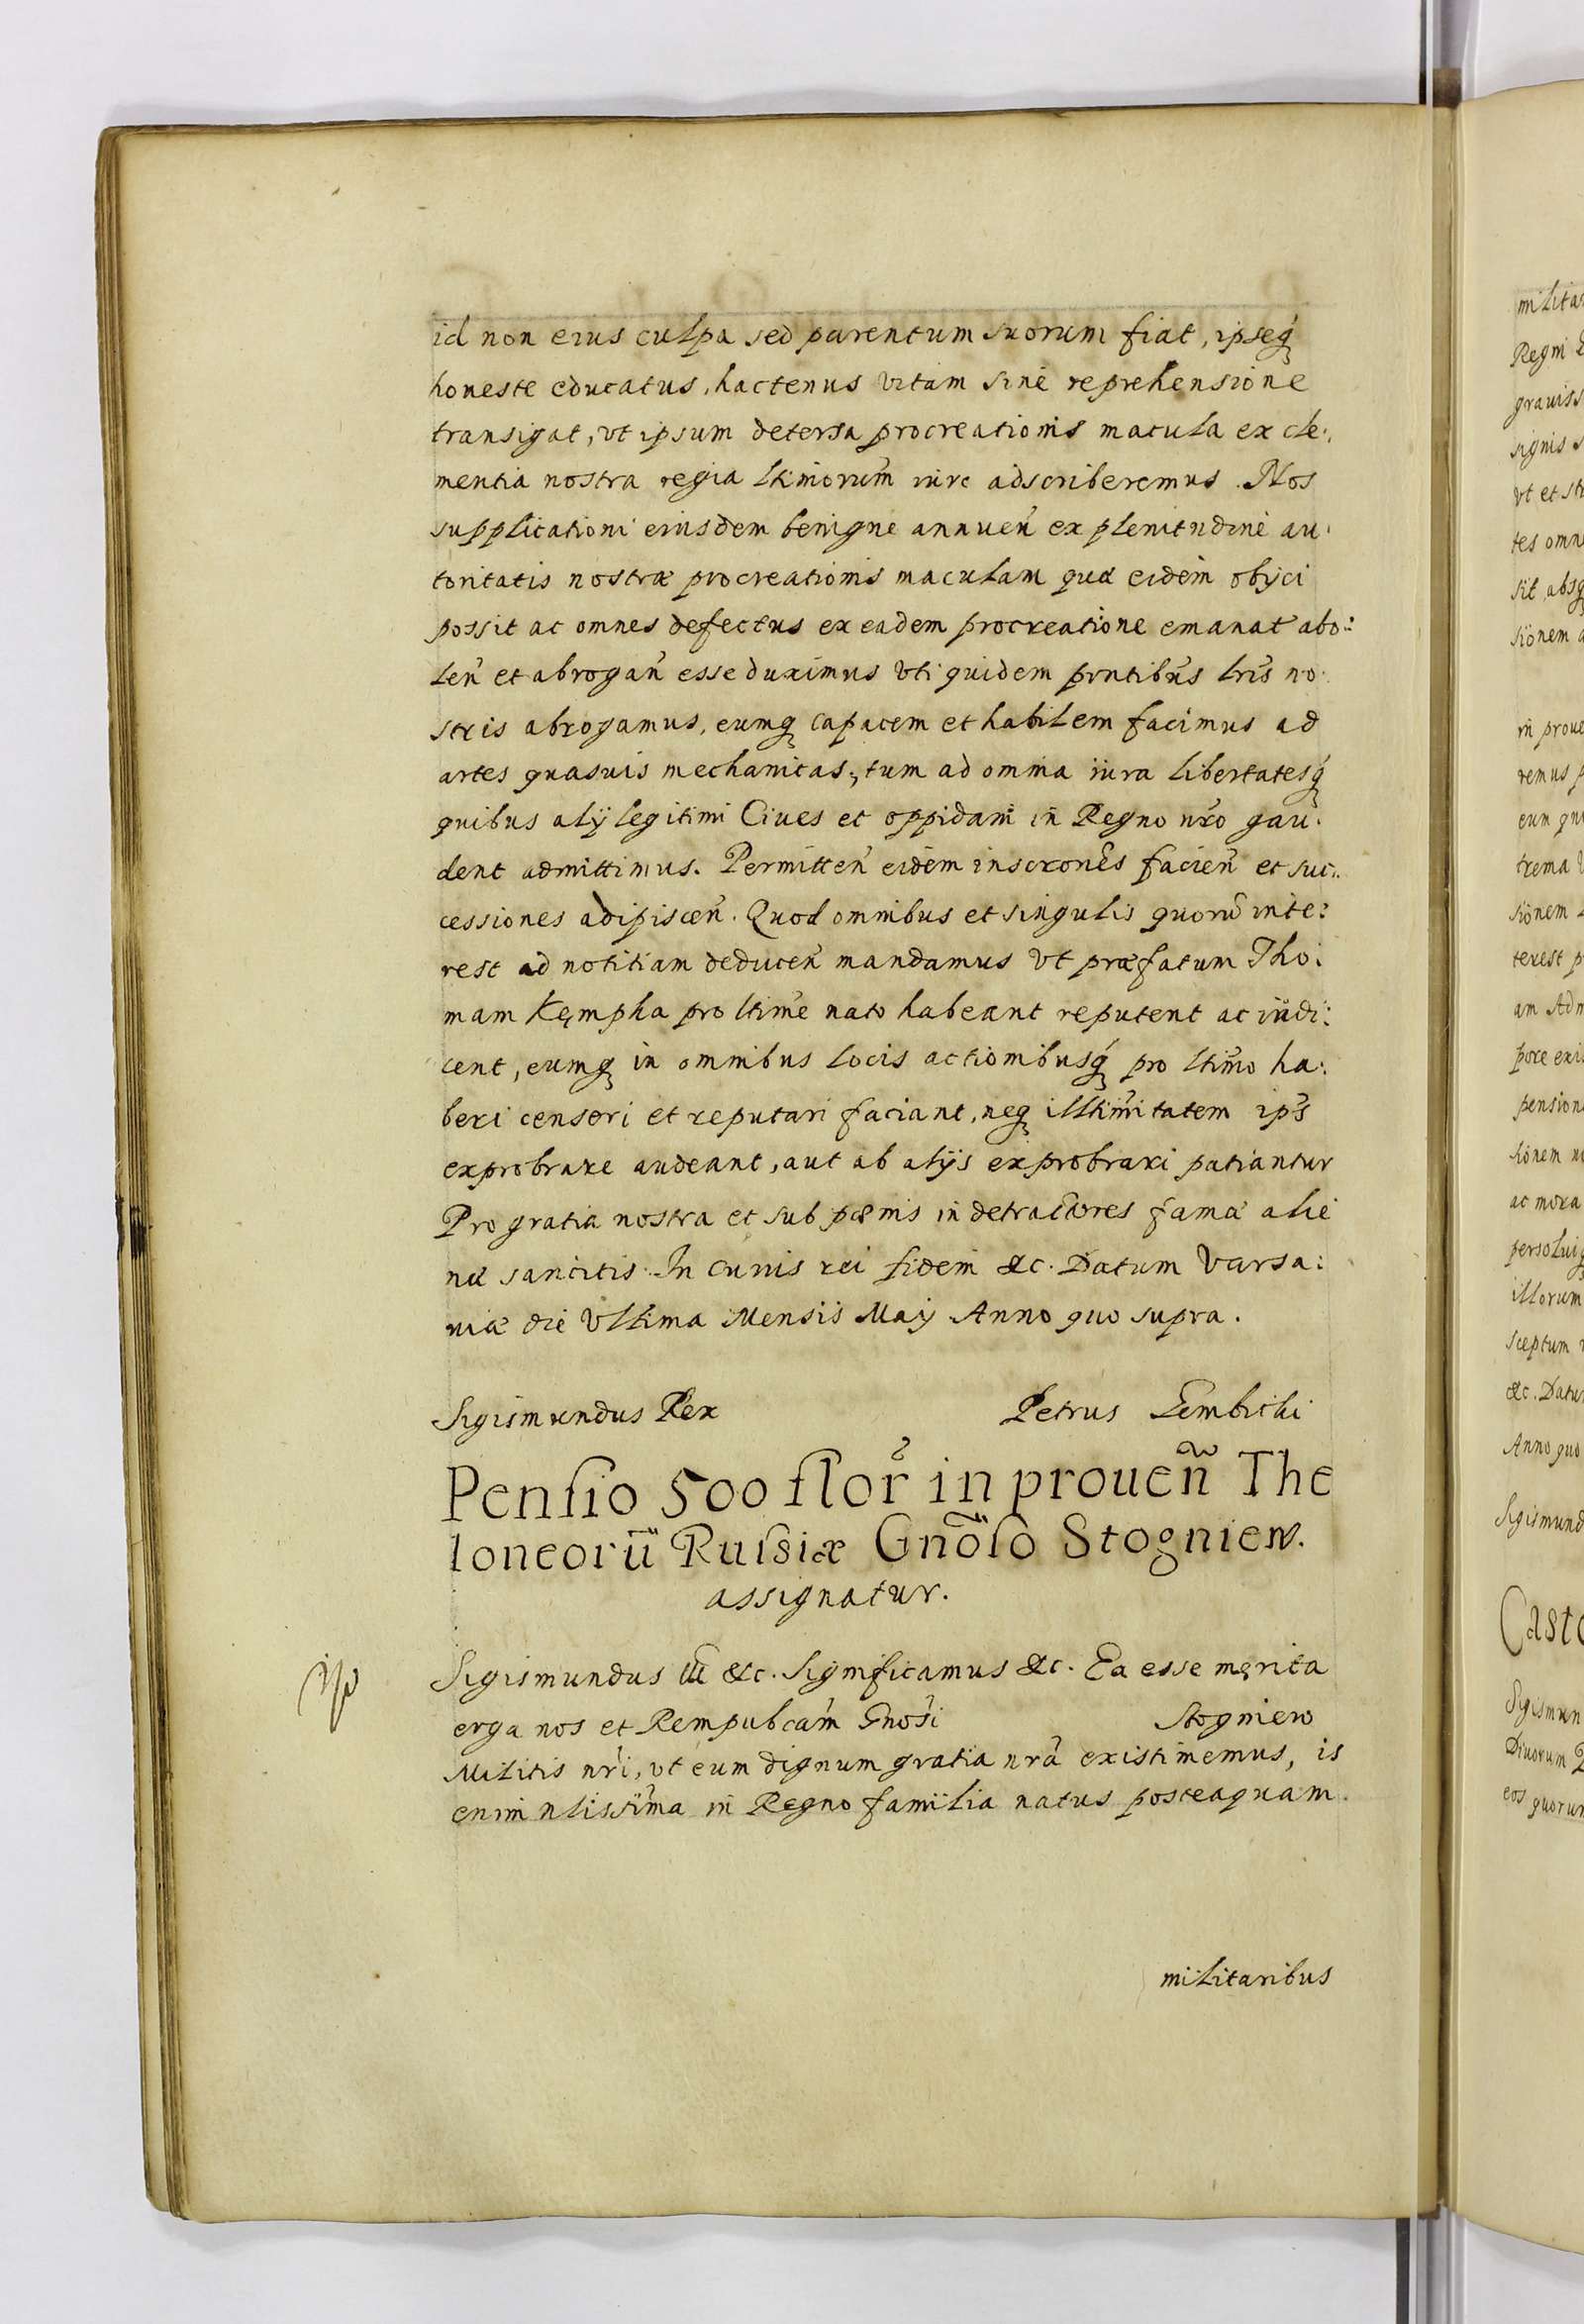 id non eius culpa sed parentum suorum fiat, ipseq́
honeste educatus, hactenus vitam sine reprehensione
transigat, vt ipsum detersa procreationis macula ex cle:
mentia nostra regia ltimorum̃ iure adscriberemus. Nos
supplicationi eiusdem benigne annueñ ex plenitudine au:
toritatis nostræ procreationis maculam quæ eidem obijci
possit ac omnes defectus ex eadem procreatione emanat̃ abo:
leñ et abrogañ esse duximus vti quidem pñtibus lris̃ no:
stris abrogamus, eumq capacem et habilem facimus ad
artes quasuis mechanicas, tum ad omnia iura libertatesq́
quibus alij legitimi Ciues et oppidani in Regno nr̃o gau:
dent admittimus. Permitteñ eidem inscrones̃ facieñ et suc:
cessiones adipisceñ. Quod omnibus et singulis quorũ inte:
rest ad notitiam deduceñ mandamus vt præfatum Tho:
mam Kęmpha pro ltime̴ nato habeant reputent ac iudi:
cent, eumq in omnibus locis actionibusq́ pro ltimõ ha:
beri censeri et reputari faciant, neq illtimĩtatem ips̃
exprobrare audeant, aut ab alijs exprobrari patiantur
Pro gratia nostra et sub pœnis in detractores famæ alie
næ sancitis. In cuius rei fidem &c. Datum Varsa:
uiæ die Vltima Mensis Maij Anno quo supra.
Sigismundus Rex Petrus Gembicki
Pensio 500 flor̃ in proueñ The
loneorũ Russiæ Gnõso Stogniew.
assignatur.
Sigismundus III &c. Significamus &c. Ea esse merita
erga nos et Rempubcam̃ Gnos̃i Stogniew
Militis nr̃i, vt eum dignum gratia nrã existimemus, is
enim nlissim̃a in Regno familia natus posteaquam
militaribus